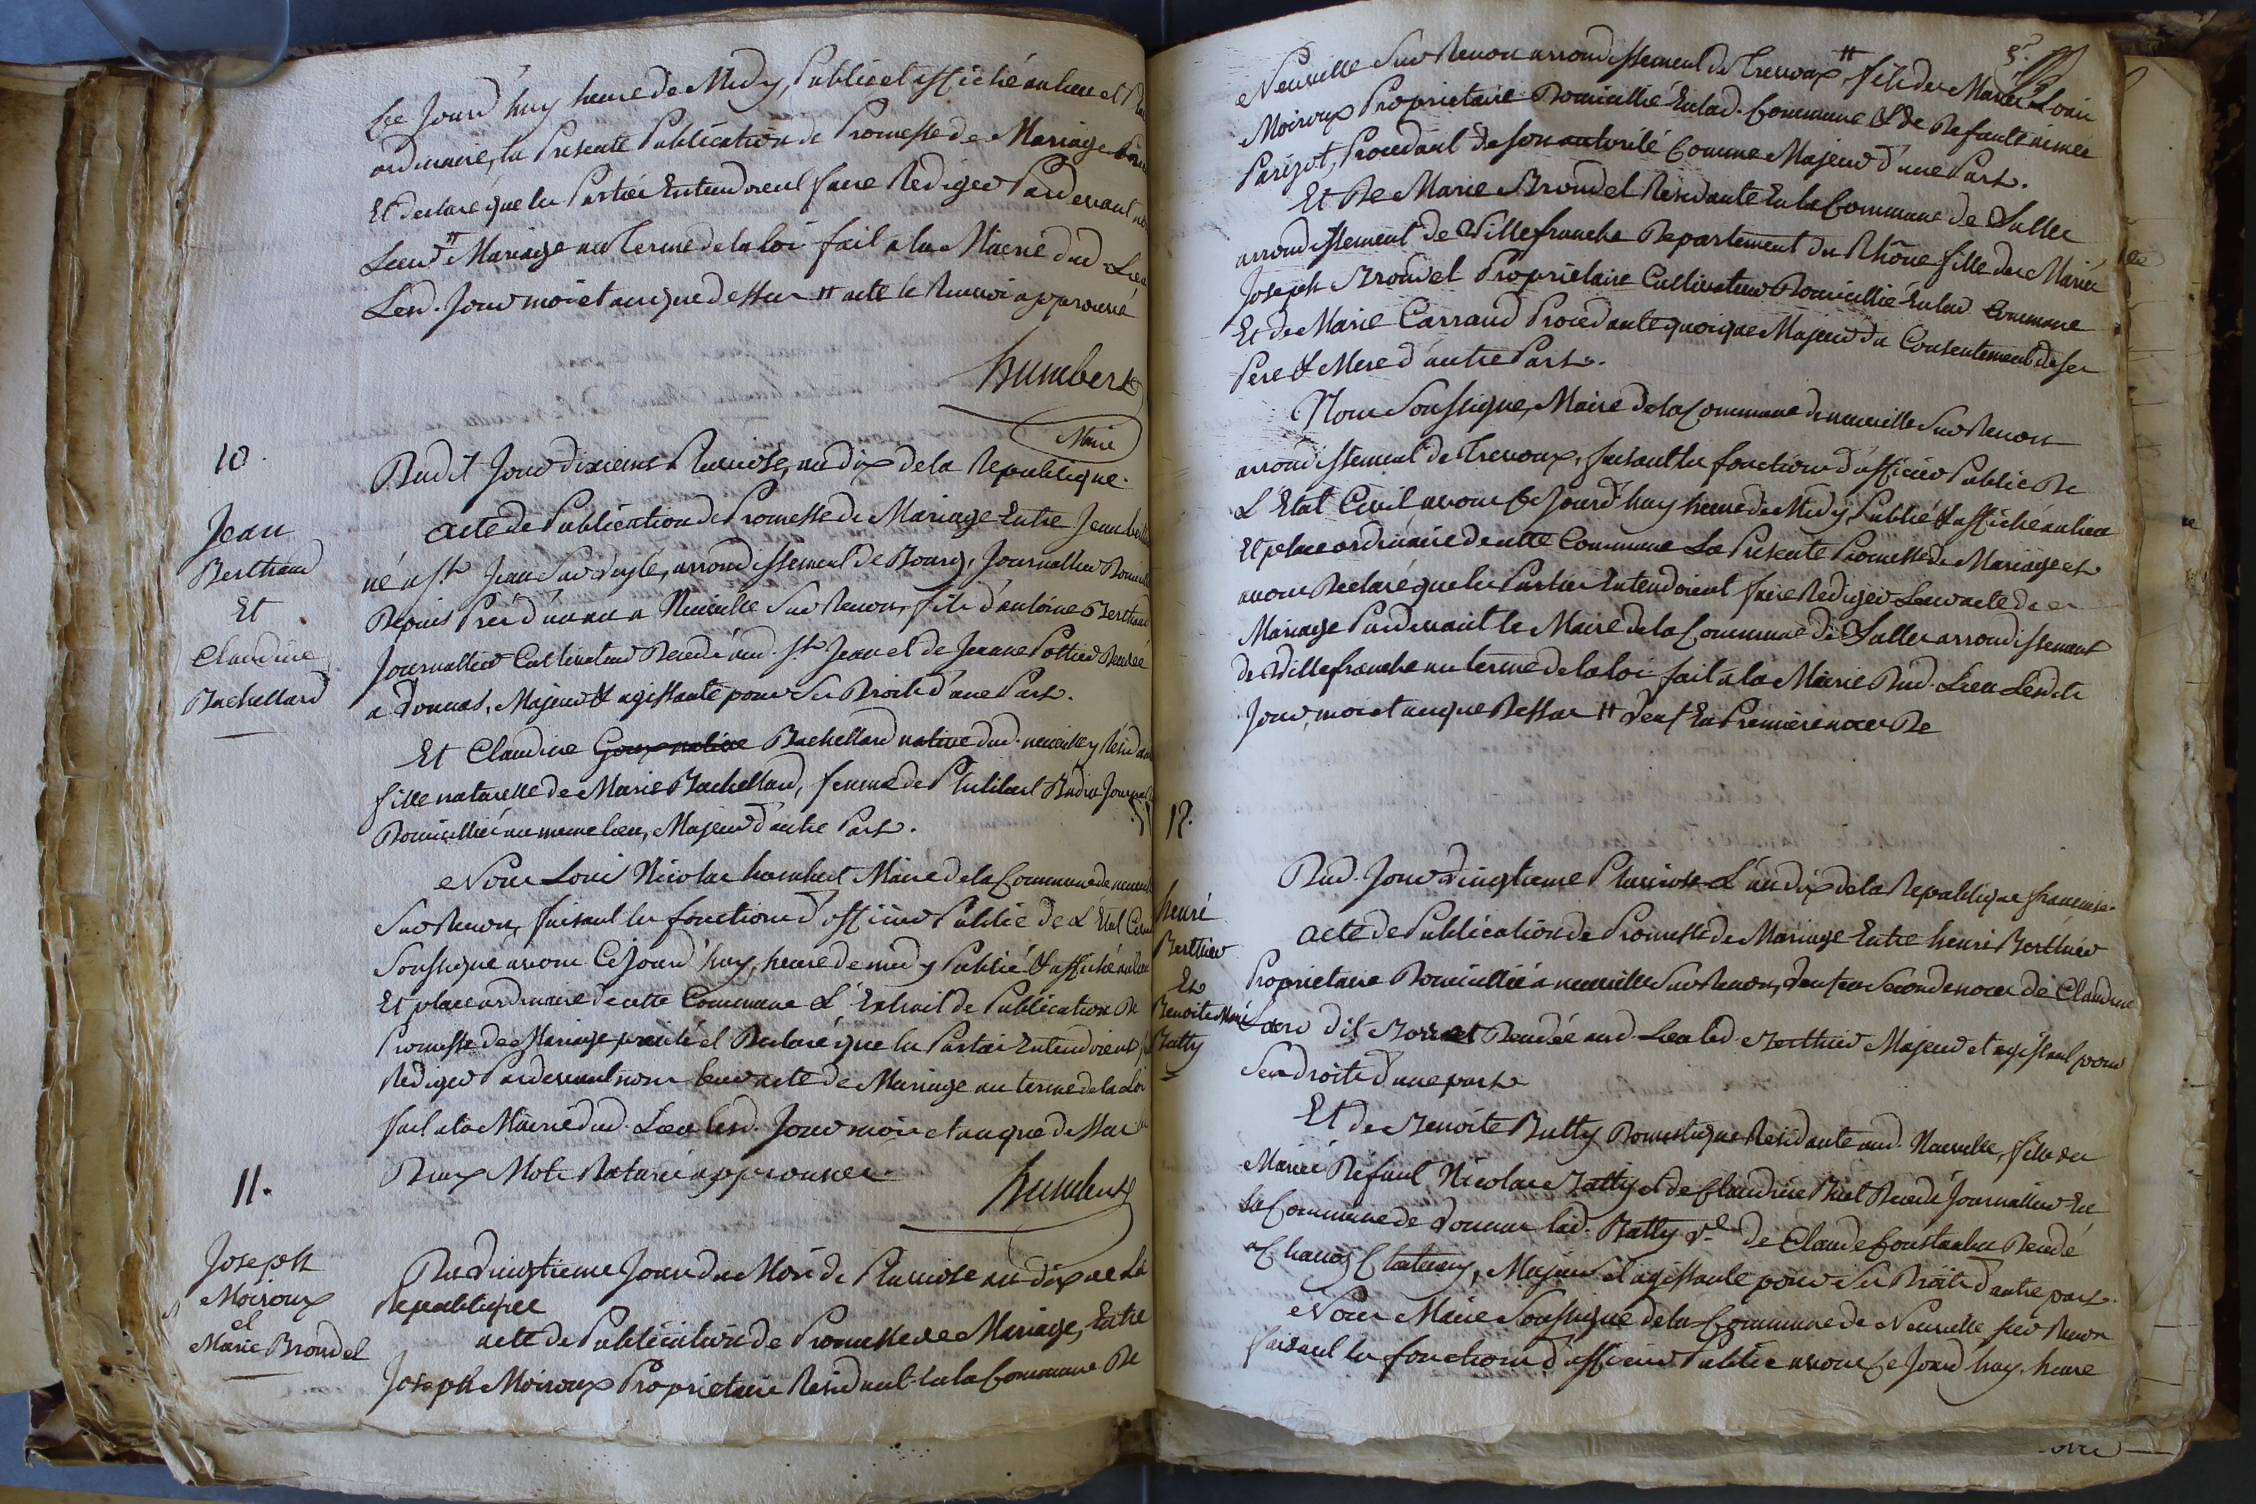 Ce Jourd'huy heure de Midy, Publié et affiché au lieu et
ordinaire, la Presente Publication de Promesse de Mariage
Et declaré que les Parties Entendoient faire Rediger Pardevant
Leur # Mariage au Terme de la loi fait a la Mairie dud Lieu
Lesd. Jour mois et an que dessus # acte le Renvoi approuvé
humbert
Maire
10.
Jean
Berthaud
Et
Claudine
Bachellard
Dudit Jour dixieme Pluviose, an dix de la Republique.
acte de Publication de Promesse de Mariage Entre Jean
né a St. Jean Sur Veyle, arrondissement de Bourg, Journallier
Depuis Près d'un an a Neuville Sur Renon, fils d'antoine Berthaud
Journallier Cultivateur Decedé aud. St. Jean et de Jeanne Pottier Decedée
a Vonnas, Majeur & agissante pour Ses Droits d'une Part.
Et Claudine Goux native Bachellard native dud. neuville y
fille naturelle de Marie Bachellard, femme de Philibert
Domicillié au meme lieu, Majeur d'autre Part.
Nous Louis Nicolas humbert Maire de la Commune de
Sur Renon, faisant les fonctions d'officier Public de L'Etat Civil
Soussigné avons Cejourd'huy, heure de midy Publié & affiché au lieu
Et place ordinaire de cette Commune L'Extrait de Publication De
Promesse de Mariage et Declaré que les Parties Entendoient
Rediger Pardevant nous leur acte de Mariage au terme de la Loi
fait a la Mairie dud. Lieu lesd. Jour mois et an que dessus
Deux Mots Raturés approuvés.
humbert
11.
Joseph
Moiroux
et
Marie Brondel
Du Vingtieme Jour du Mois de Pluviose an dix de La
Republique
acte de Publication de Promesse de Mariage, Entre
Joseph Moiroux Proprietaire Residant En la Commune De
Neuville Sur Renon arrondissement de Trevoux #, fils de Mariés Louis
Moiroux Proprietaire Domicillié En lad. Commune & de Defunte aimée
Parizot, Procedant de son autorité Comme Majeur d'une Part.
Et De Marie Brondel Residante En la Commune de Salles
arrondissement de Villefranche Departement du Rhône fille des Mariés
Joseph Brondel Proprietaire Cultivateur Domicillié En lad Commune
Et de Marie Carraud Procedante quoique Majeur du Consentement de ses
Pere & Mere d'autre Part.
Nous Soussigné, Maire de la Commune de neuville Sur Renon
arrondissement de Trevoux, faisant les fonctions d'officier Public De
L'Etat Civil avons Ce Jourd'huy heure de Midy, Publié & affiché au lieu
Et place ordinaire de cette Commune La Presente Promesse de Mariage et
avons Declaré que les Parties Entendoient faire Rediger Leur acte de
Mariage Pardevant le Maire de la Commune de Salles arrondissement
de Villefranche au terme de la loi fait a la Mairie Dud. Lieu Lesdits
Jour, mois et an que Dessus # Veuf En Premiere noces De
12.
henri
Berthier
Et
Benoite
Batty
Dud. Jour Vingtieme Pluviose L'an dix de la Republique francaise.
acte de Publication de Promesse de Mariage Entre henri Berthier
Proprietaire Domicillié a neuville Sur Renon, Veuf en Seconde noces de Claudine
dit Decedée aud. Lieu led Berthier Majeur et agissant pour
Ses droits d'une part
Et de Benoite Batty Domestique Residante aud. Neuville, fille des
Mariés Défunt Nicolas Batty & de Claudine Decedé Journallier En
la Commune de Vonnas lad. Batty Ve. de Claude Decedé
a Chanoz Chatenay, Majeur et agissante pour Ses Droits d'autre part.
Nous Maire Soussigné de la Commune de Neuville sur Renon
faisant les fonctions d'officier Public avons Ce Jourd'huy, heure